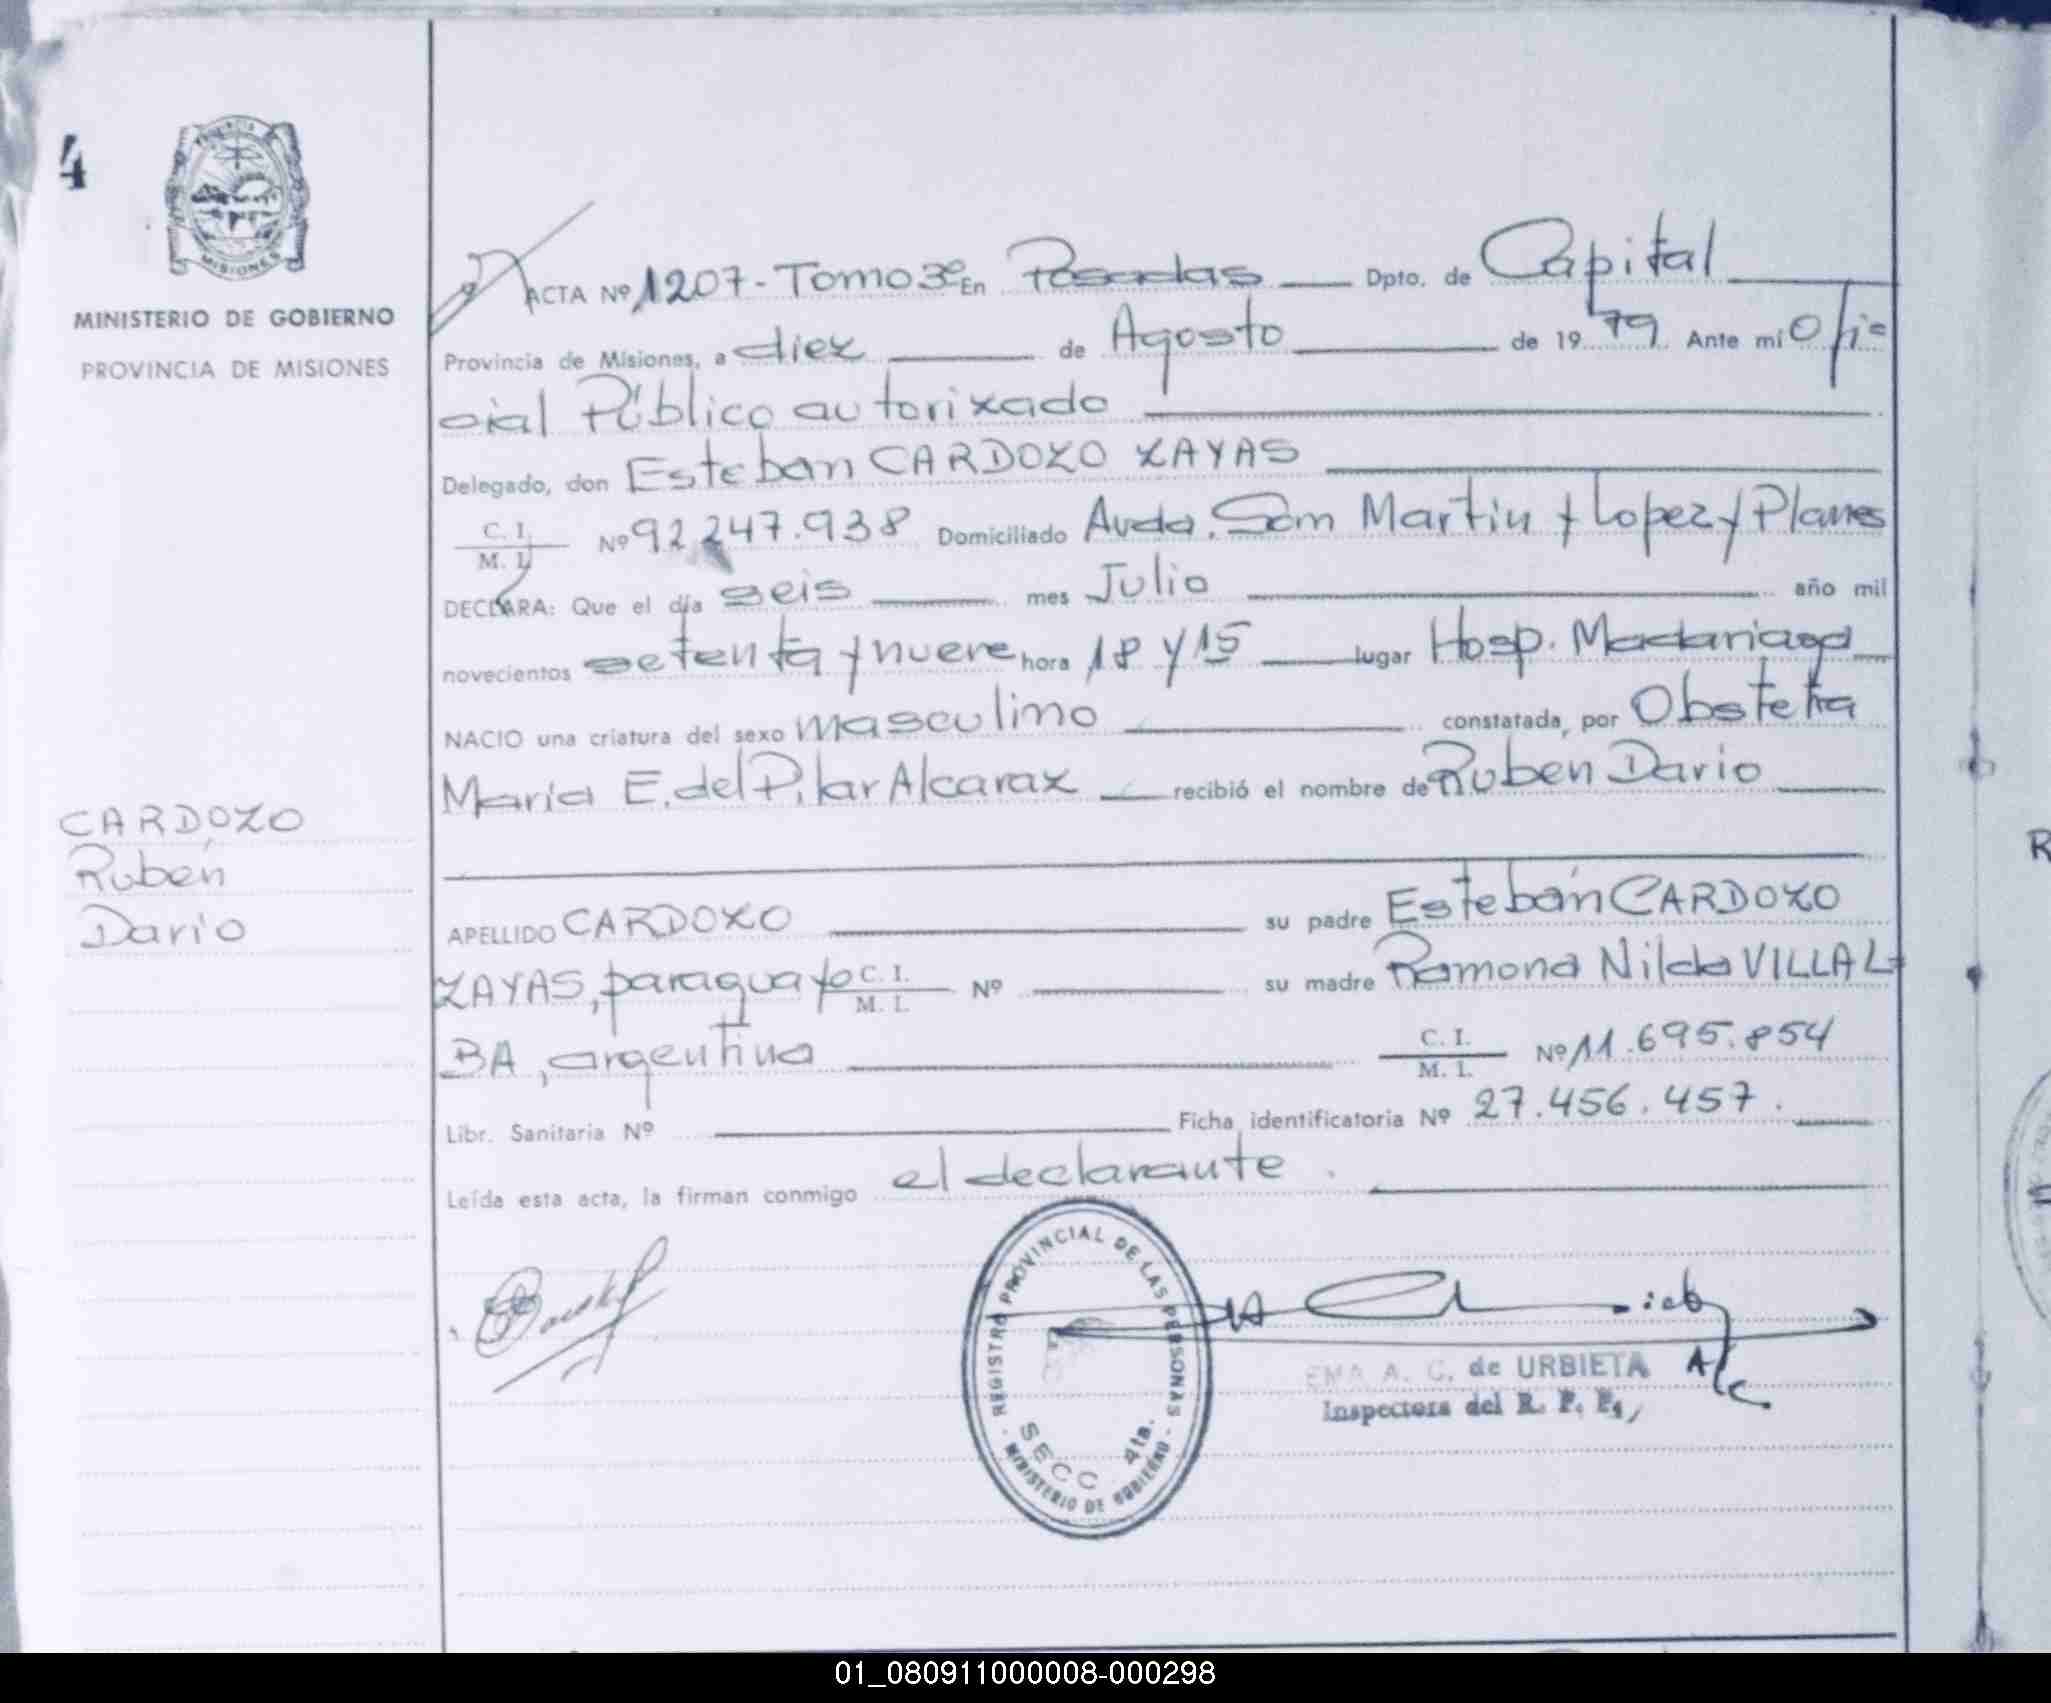 4
PROVINCIA
MISIONES
MINISTERIO DE GOBIERNO
PROVINCIA DE MISIONES
CARDOZO
Rubén
Dario
ACTA Nº 1207 - Tomo 3º En Posadas Dpto. de Capital
Provincia de Misiones, a diez de Agosto de 1979. Ante mí Ofi
cial Público autorizado
Delegado, don Esteban CARDOZO ZAYAS
C. I.
M. I. Nº 92.247.938 Domiciliado Avda. San Martin y Lopez y Planes
DECLARA: Que el día seis mes Julio año mil
novecientos setenta y nueve hora 18 y 15 lugar Hosp. Madariaga
NACIO una criatura del sexo masculino constatada por Obstetra
María E. del Pilar Alcaraz recibió el nombre de Ruben Dario
APELLIDO CARDOZO su padre Esteban CARDOZO
ZAYAS, paraguayo C. I. M. I. Nº su madre Ramona Nilda VILLAL-
BA, argentina C. I. M. I. Nº 11.695.854
Libr. Sanitaria Nº Ficha identificatoria Nº 27.456.457.
Leída esta acta, la firman conmigo el declarante.
REGISTRO PROVINCIAL DE LAS PERSONAS
SECC. 4ta.
- MINISTERIO DE GOBIERNO -
EMA A. C. de URBIETA
Inspectora del R. P. P.
R
01_080911000008-000298